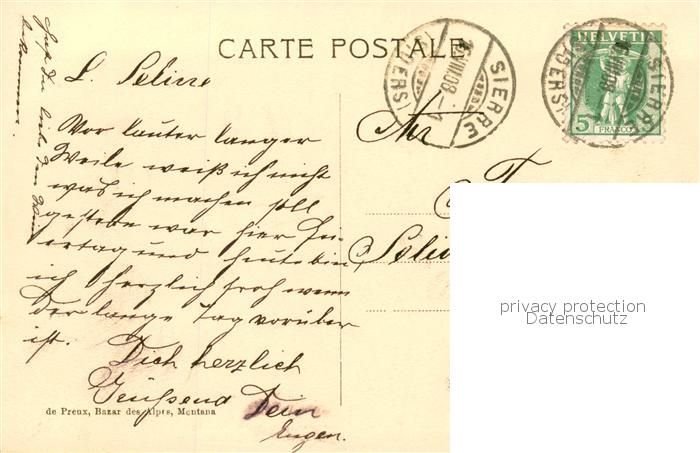 CARTE POSTALE
HELVETIA
5
FRANCO
SIERRE
(SIDERS)
16.VIII.08
SIERRE
(SIDERS)
VIII.08
L. Selina
Vor lauter langer
Weile weiß ich nicht
was ich machen soll
gestern war hier Fei-
ertag und heute bin
ich herzlich froh wenn
der lange Tag vorüber
ist.
Dich herzlich
Grüssend Dein
Eugen.
de Preux, Bazar des Alpes, Montana
privacy protection
Datenschutz